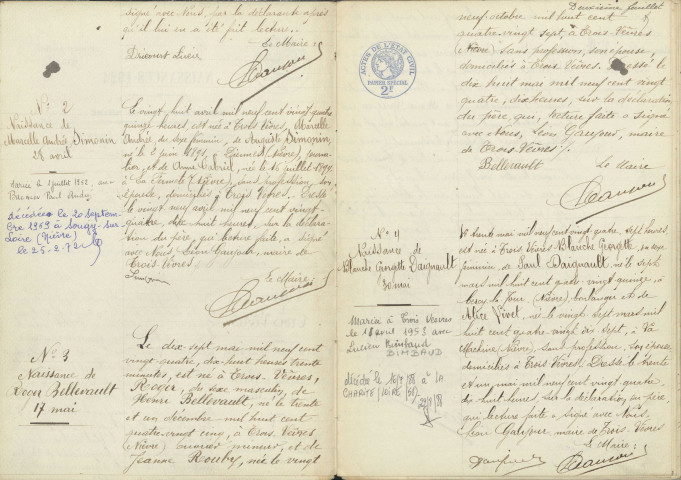 signé avec Nous, par la déclarante après
qu'il lui en a été fait lecture.
Le Maire
N° 2
Naissance de
Marcelle Andrée Simonin
28 avril
décédée le 20 septem-
bre 1969 à Sougy-sur-
Loire (Nièvre)
le 25-2-72
Le vingt huit avril mil neuf cent vingt quatre
quinze heures, est née à Trois Vèvres, Marcelle
Andrée, du sexe féminin, de Auguste Simonin,
né le 2 juin 1891, à (Nièvre),
et de
à La Fermeté (Nièvre), sans profession, son
épouse, domiciliés à Trois Vèvres. Dressé
le vingt neuf avril mil neuf cent vingt-
quatre, dix huit heures, sur la déclara-
tion du père, qui, lecture faite, a signé
avec Nous, Léon Gaujour, maire de
Trois Vèvres
Le Maire
N° 3
Naissance de
Roger Bellevault
17 mai
Le dix sept mai mil neuf cent
vingt quatre, dix huit heures trente
minutes, est né à Trois Vèvres,
Roger, du sexe masculin, de
Henri Bellevault, né le trente
et un décembre mil huit cent
quatre-vingt cinq, à Trois Vèvres
(Nièvre) ouvrier mineur, et de
Jeanne Rouby, née le vingt
Deuxième feuillet
neuf octobre mil huit cent
quatre-vingt sept à Trois Vèvres
(Nièvre) sans profession, son épouse,
domiciliés à Trois Vèvres. Dressé le
dix huit mai mil neuf cent vingt
quatre, dix heures, sur la déclaration
du père, qui, lecture faite a signé
avec Nous, Léon Gaujour, maire
de Trois Vèvres.
Bellevault Le Maire
ACTES DE L'ETAT CIVIL
PAPIER SPECIAL
2F
N° 4
Naissance de
Blanche Georgette Daignault
30 mai
Mariée à Trois Vèvres
le 18 avril 1953 avec
Lucien Raimbaud
DIMBAUD
décédé le 16/9/88 à LA
CHARITE/LOIRE (58)
Le trente mai mil neuf cent vingt quatre, sept heures,
est née à Trois Vèvres Blanche Georgette, du sexe
féminin, de Paul Daignault, né le sept
mars mil huit cent quatre-vingt quinze à
Cercy la Tour, (Nièvre) boulanger et de
Alice Vivel, née le vingt sept mars mil
huit cent quatre vingt dix sept, à La
Machine (Nièvre), sans profession, son épouse
domiciliés à Trois Vèvres. Dressé le trente
et un mai mil neuf cent vingt quatre,
dix huit heures sur la déclaration du père
qui lecture faite a signé avec Nous,
Léon Gaujour maire de Trois Vèvres
Le Maire